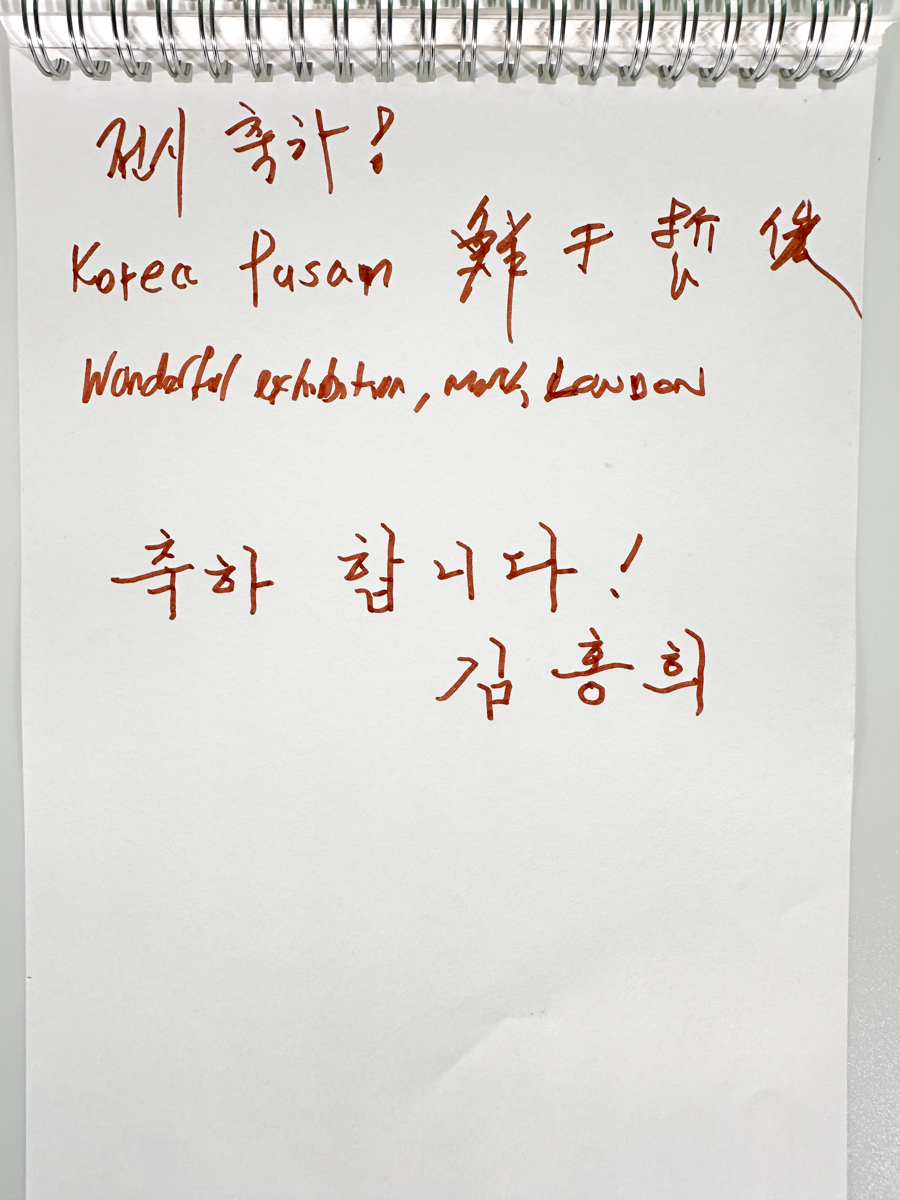 전시 축하!
Korea Pusan 鮮于哲俊
Wonderful exhibition, Mark, LONDON
축하 합니다!
김홍희